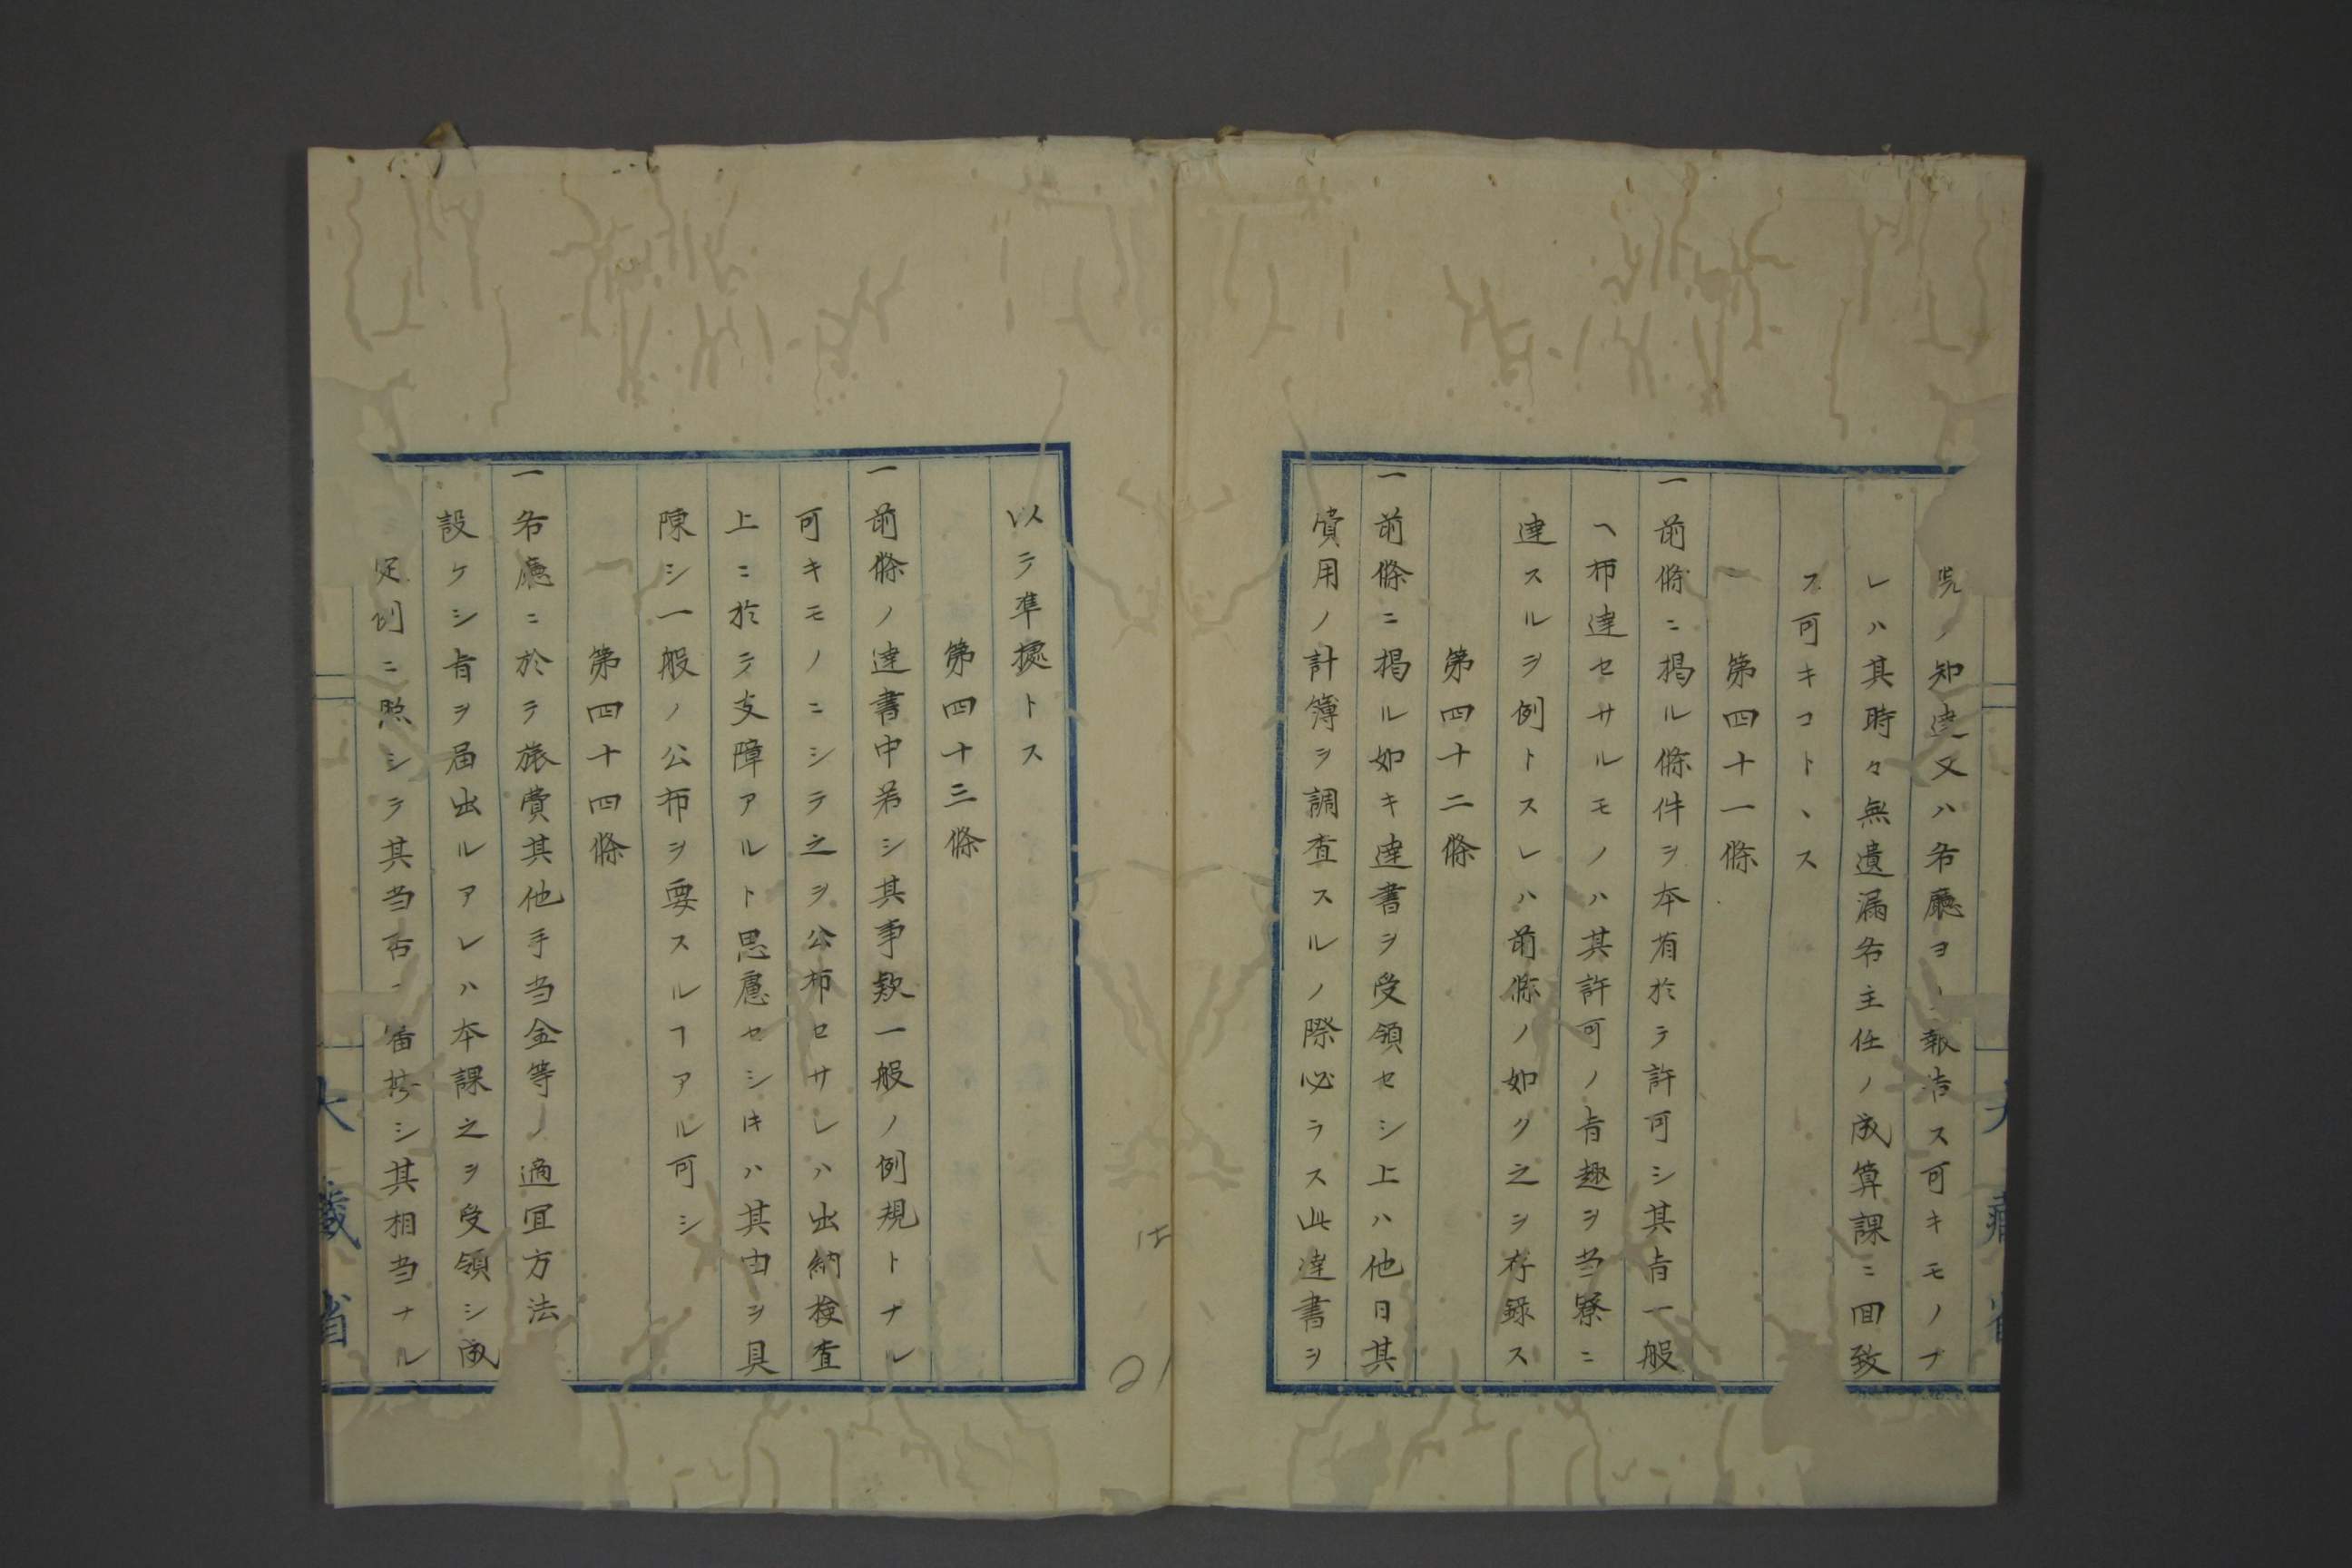 ノ知達又ハ各廳ヨ報告ス可キモノナ
レハ其時々無遺漏各主任ノ成算課ニ回致
ス可キコトヽス
第四十一條
一前條ニ掲ル條件ヲ本省於テ許可シ其旨一般
ヘ布達セサルモノハ其許可ノ旨趣ヲ当寮ニ
達スルヲ例トスレハ前條ノ如ク之ヲ存録ス
第四十二條
一前條ニ掲ル如キ達書ヲ受領セシ上ハ他日其
費用ノ計簿ヲ調査スルノ際必ラス此達書ヲ
以テ準據トス
第四十三條
一前條ノ達書中若シ其事款一般ノ例規トナレ
可キモノニシテ之ヲ公布セサレハ出納検査
上ニ於テ支障アルト思慮セシ𬼂ハ其由ヲ具
陳シ一般ノ公布ヲ要スルヿアル可シ
第四十四條
一各廳ニ於テ旅費其他手当金等ノ適冝方法
設ケシ旨ヲ届出ルアレハ本課之ヲ受領シ成
定則ニ照シテ其当否審按シ其相当ナル
大藏省
21